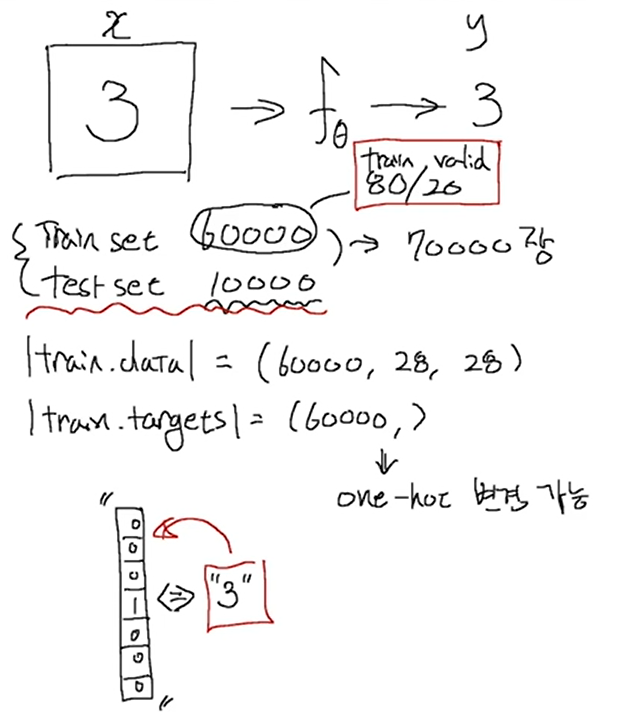 x y
3 → fθ → 3
train valid
80/20
{ Train set 60000 ) → 70000장
test set 10000
|train.data| = (60000, 28, 28)
|train.targets| = (60000, )
⇓
one-hot 변경 가능
"
0
0
0
1
0
0
0
"
⇔ "3"